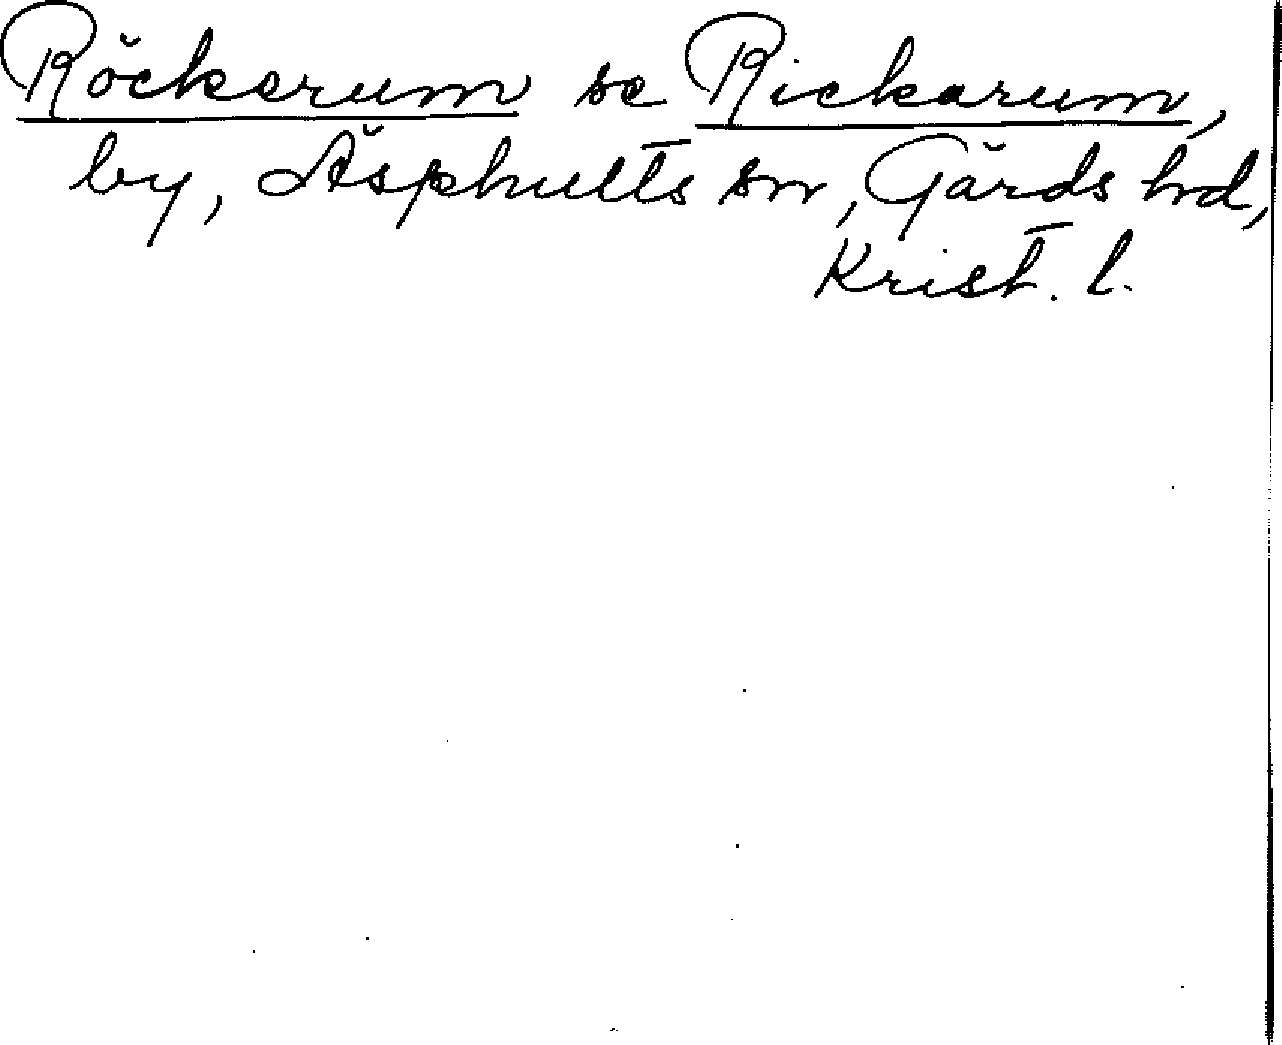 Röckerum se Rickarum,
by, Äsphults sn, Gärds hrd,
Krist. l.